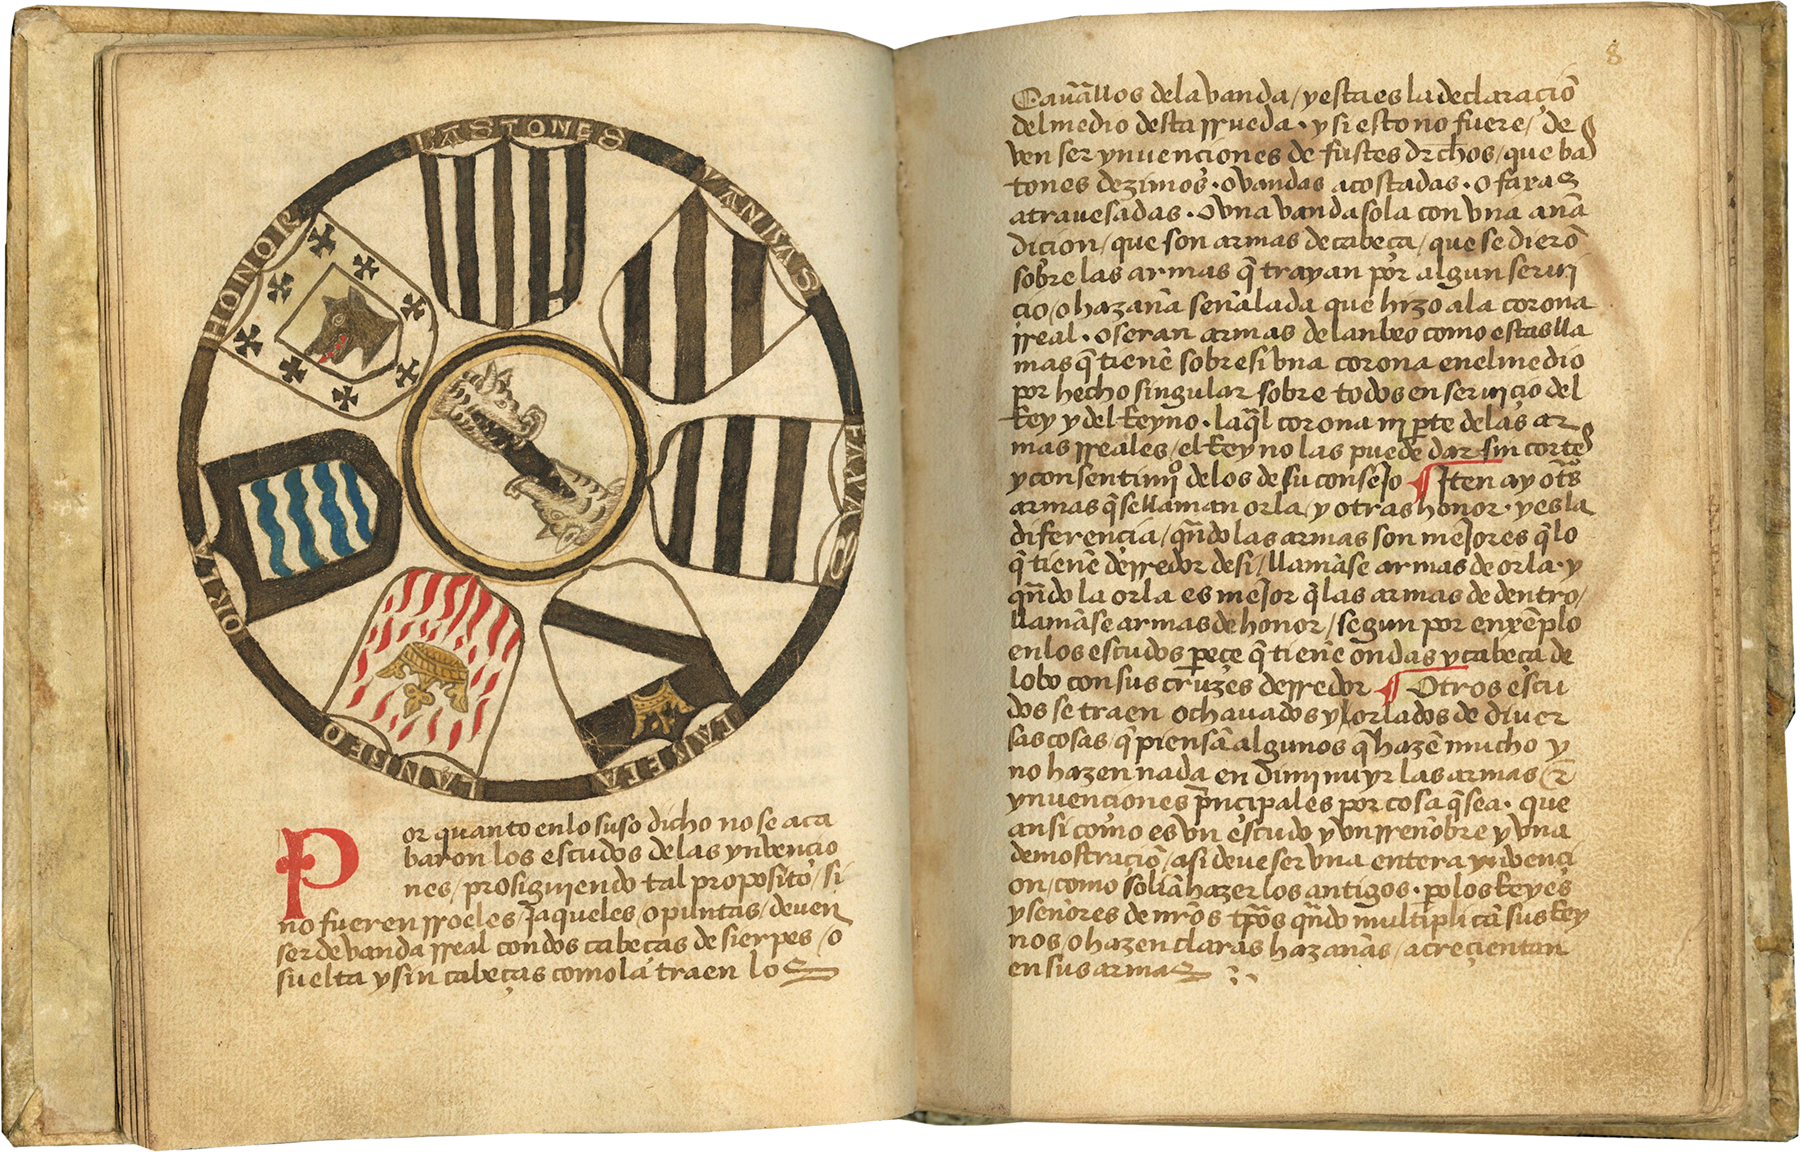 BASTONES
VANDAS
FAXAS
CABEÇA
LANBEO
ORLA
HONOR
Por quanto en lo suso dicho no se aca
baron los escudos delas ynvencio
nes / prosiguiendo tal proposito / si
no fueren rroeles / jaqueles / o puntas / deven
ser de vanda rreal con dos cabeças de sierpes / o
suelta y sin cabeças como la traen los
8
Cavãllos dela vanda / y esta es la declaraçiõ
del medio desta rrueda · y si esto no fuere / de
ven ser ynvenciones de fustes drchos / que bas
tones dezimos · o vandas acostadas · o faxas
atravesadas · o vna vanda sola con vna aña
dicion / que son armas de cabeça / que se dierõ
sobre las armas q̃ trayan por algun servi
cio / o hazaña señalada que hizo ala corona
rreal · o seran armas de lanbeo como estas lla
mas q̃ tienẽ sobre si vna corona enel medio
por hecho singular sobre todos en servicio del
Rey y del Reyno · la q̃l corona ni pte delas ar
mas rreales / el Rey no las puede dar sin cortes
y consentimỹ delos de su consejo ¶ Iten ay ots̃
armas q̃ se llaman orla / y otras honor · y es la
diferençia / qñdo las armas son mejores q̃ lo
q̃ tienẽ derredor de si / llamãse armas de orla · y
qñdo la orla es mejor q̃ las armas de dentro /
llamãse armas de honor / segun por enxẽplo
en los escudos peçe q̃ tienẽ ondas y cabeça de
lobo con sus cruzes derredor ¶ Otros escu
dos se traen ochavados y orlados de diver
sas cosas / q̃ piensã algunos q̃ hazẽ mucho y
no hazen nada en diminuyr las armas &
ynvenciones prĩncipales por cosa q̃ sea · que
ansi como es vn escudo y vn rrenõbre y vna
demostraciõ / asi deve ser vna entera ynvenci
on / como soliã hazer los antigos · po los Reyes
y señores de nr̃os tpõs qñdo multiplicã sus Rey
nos / o hazen claras hazañas / acreçientan
en sus armas